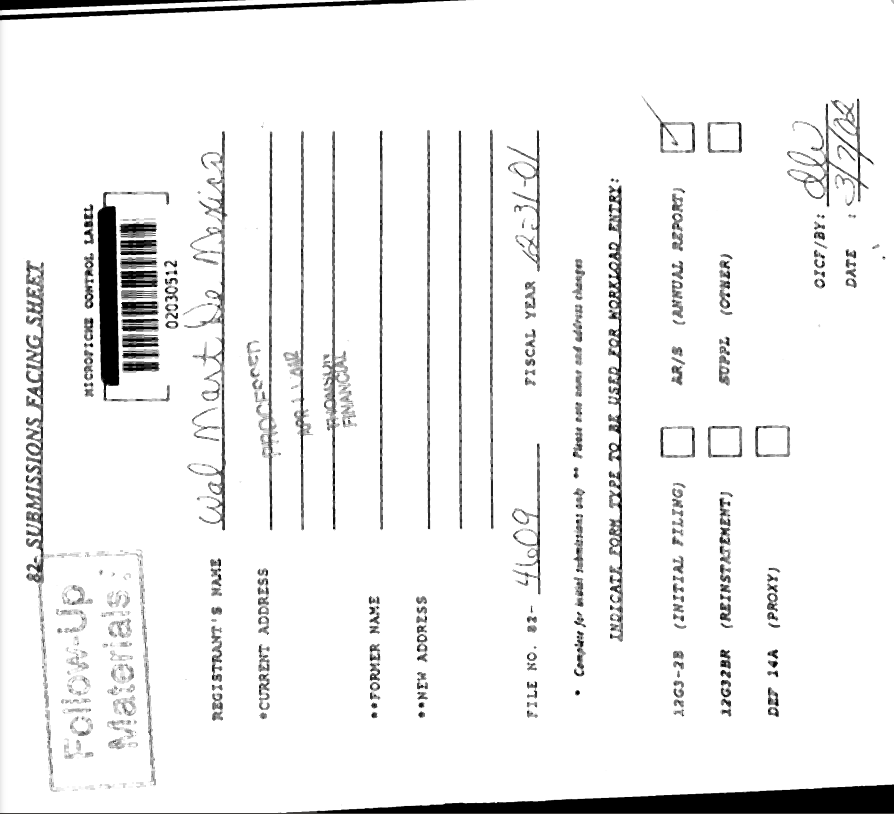 82- SUBMISSIONS FACING SHEET
Follow-Up
Materials
MICROFICHE CONTROL LABEL
02030512
REGISTRANT'S NAME Wal Mart De Mexico
*CURRENT ADDRESS
PROCESSED
APR 11
THOMSON
FINANCIAL
**FORMER NAME
**NEW ADDRESS
FILE NO. 82- 4609 FISCAL YEAR 12-31-01
* Complete for initial submissions only ** Please note name and address changes
INDICATE FORM TYPE TO BE USED FOR WORKLOAD ENTRY:
12G3-2B (INITIAL FILING) AR/S (ANNUAL REPORT)
12G32BR (REINSTATEMENT) SUPPL (OTHER)
DEF 14A (PROXY)
OICF/BY:
DATE : 3/7/02